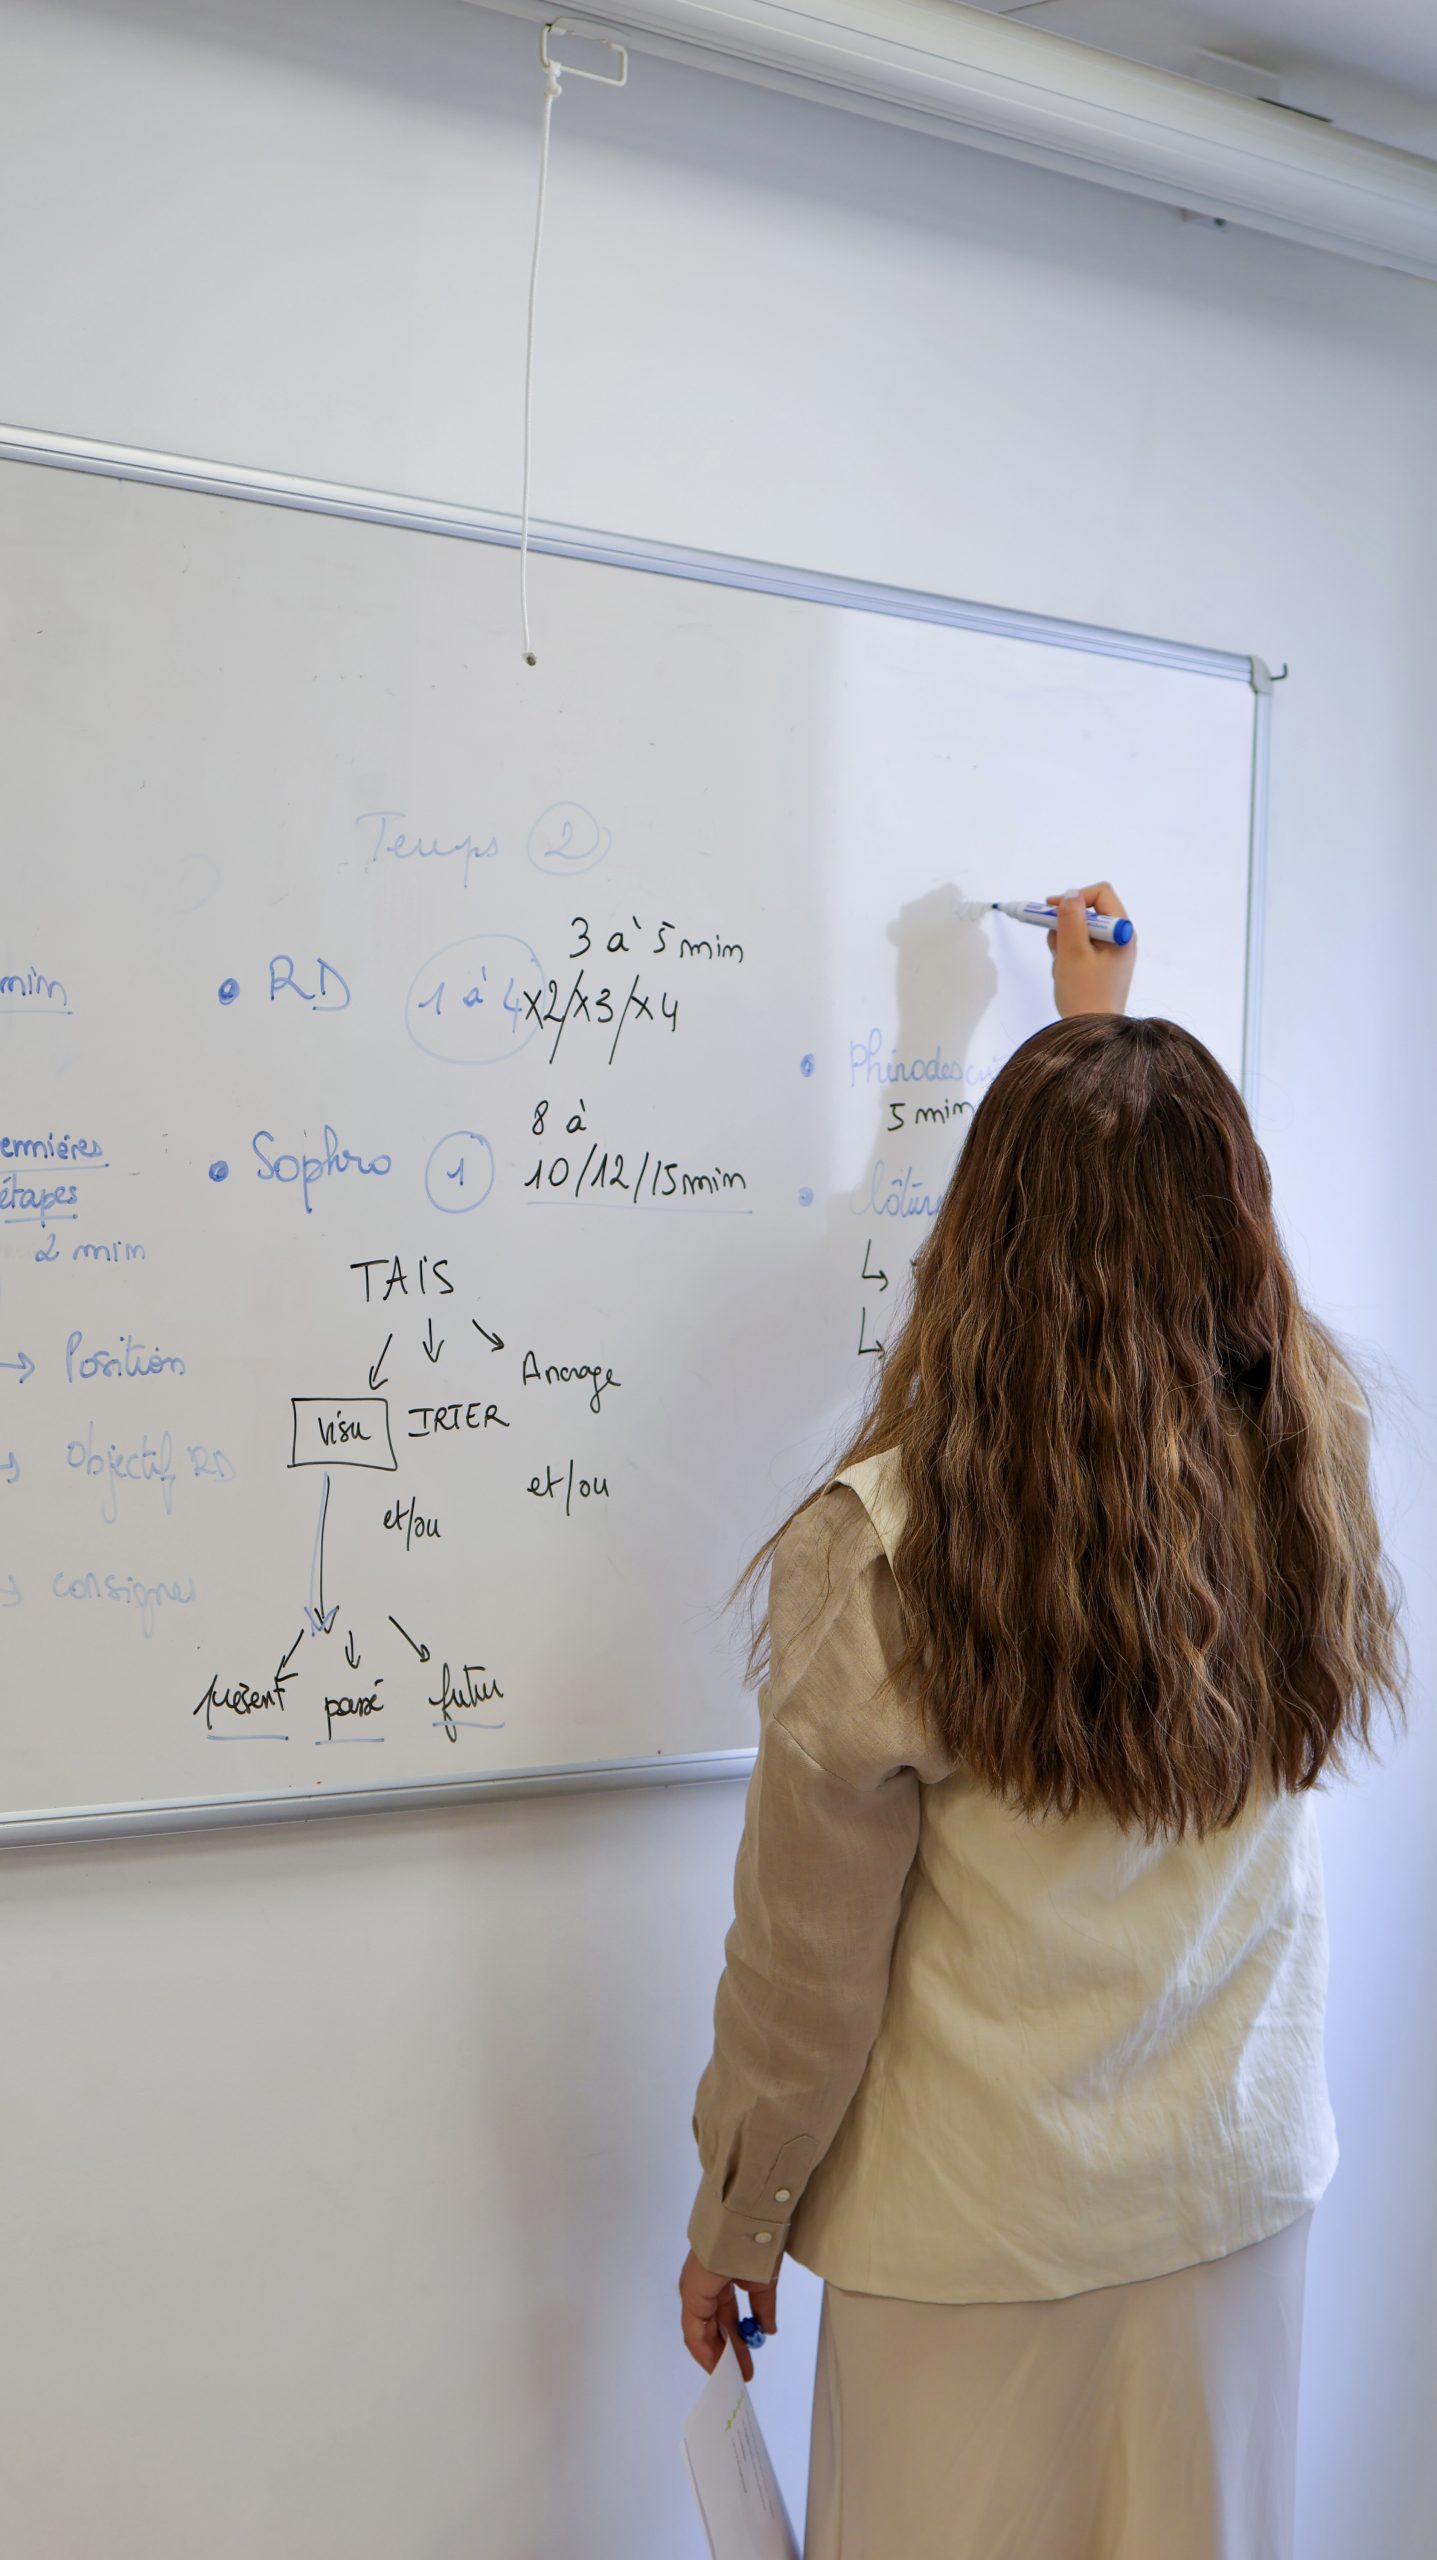 Temps 2
min
• RD 1 à 4 x2/x3/x4
3 à 5 min
ernières
étapes
2 min
→ Position
→ Objectif RD
→ consignes
• Sophro 1
8 à
10/12/15min
TAIS
visu
IRTER
Ancrage
et/ou
et/ou
présent passé futur
• 
5 min
• Clôtur